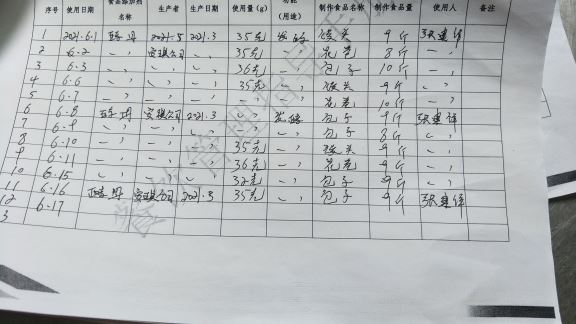 序号 使用日期 食品添加剂名称 生产者 生产日期 使用量(g) 功能(用途) 制作食品名称 制作食品量 使用人 备注
1 2021.6.1 酵母 2021.3 35克 馒头 9斤 张建
2 6.2 安琪公司 35克 花卷 8斤
3 6.3 36克 包子 10斤
4 6.6 35克 馒头 9斤
5 6.7 花卷 10斤
6 6.8 酵母 安琪公司 2021.3 包子 9斤 张建
7 6.9 包子 8斤
8 6.10 35克 馒头 9斤
9 6.11 36克 花卷 9斤
10 6.15 32克 包子 9斤
11 6.16 酵母 安琪公司 2021.3 35克 包子 9斤 张建
12 6.17
3